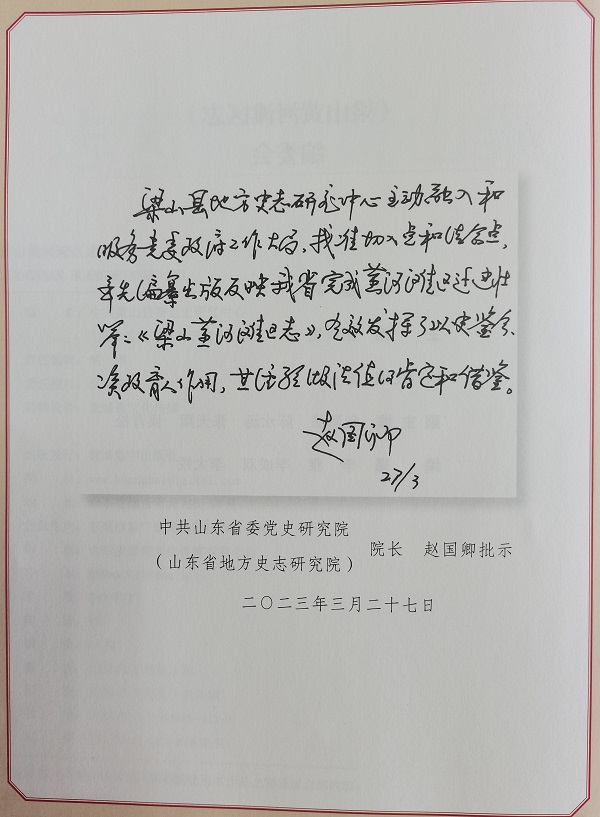 梁山县地方史志研究中心主动融入和
服务党委政府工作大局，找准切入点和结合点，
率先编纂出版反映我省完成黄河滩区迁建壮
举：《梁山黄河滩区志》，有效发挥了以史鉴今、
资政育人作用，其经验做法值得肯定和借鉴。
赵国卿
27/3
中共山东省委党史研究院
（山东省地方史志研究院）
院长 赵国卿批示
二〇二三年三月二十七日